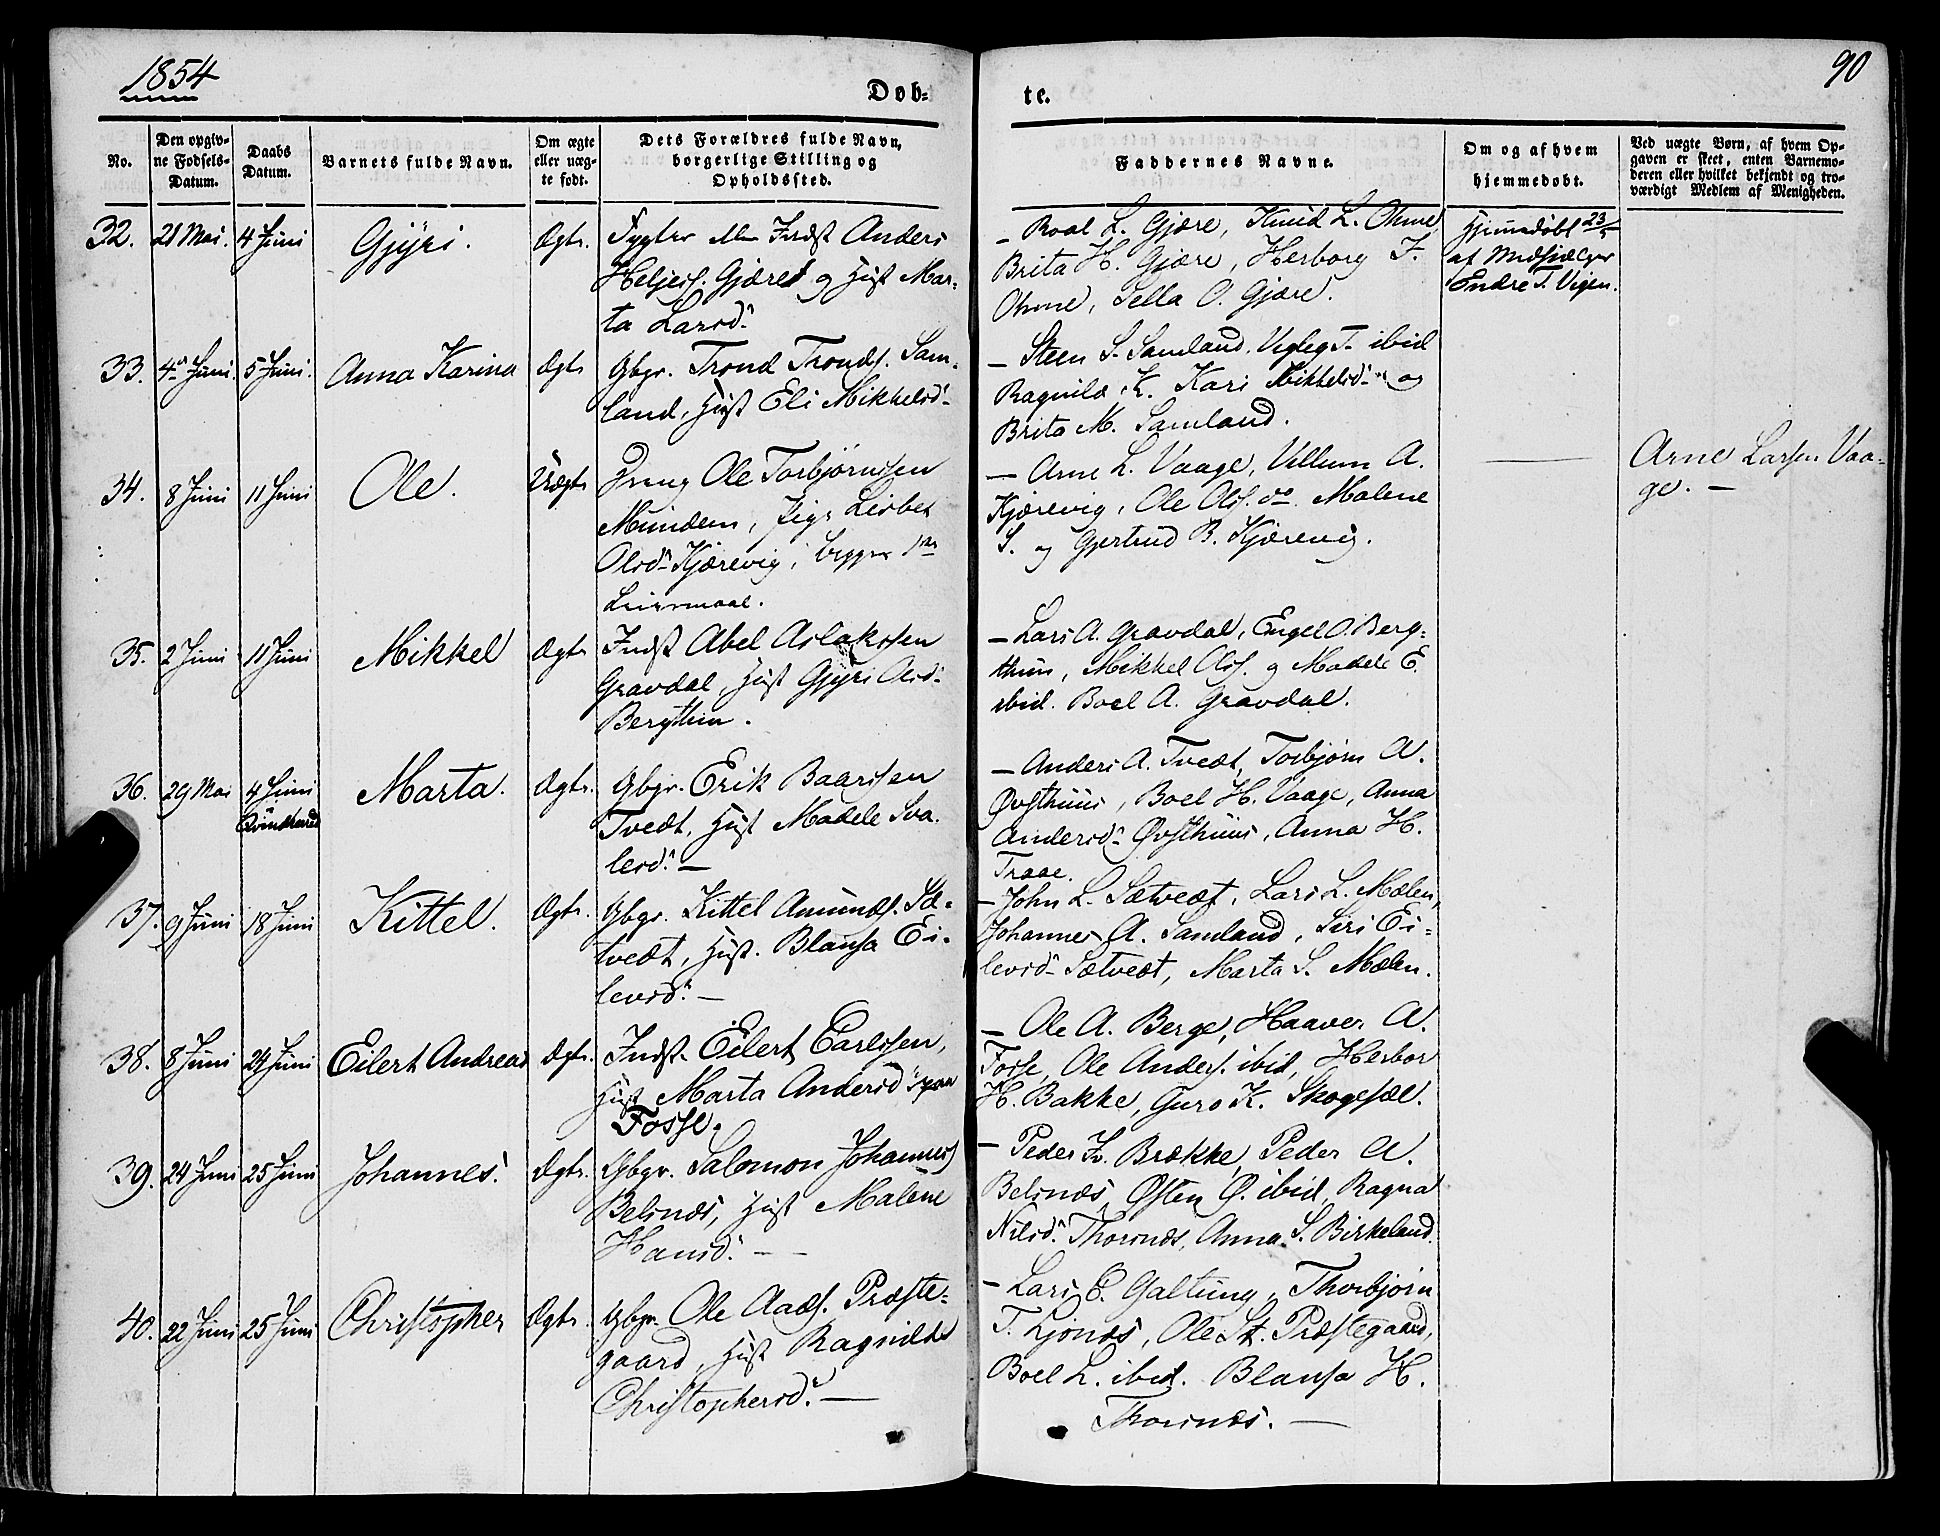 1854
90
Døb-
te.
No.
Den opgiv-
ne Fødsels-
Datum.
Daabs
Datum.
Barnets fulde Navn.
Om ægte
eller uæg-
te født.
Dets Forældres fulde Navn,
borgerlige Stilling og
Opholdssted.
Faddernes Navne.
Om og af hvem
hjemmedøbt.
Ved uægte Børn, af hvem Op-
gaven er skeet, enten Barnemo-
deren eller hvilket bekjendt og tro-
værdigt Medlem af Menigheden.
32. 21 Mai. 4 Juni Gjyri. Ægte. Inds̅t Anders
Heljess. Gjæret og Hust Mar-
ta Larsd.
– Roal L. Gjære, Knud L. Ohme
Brita H. Gjære, Herborg J.
Ohme, Sella O. Gjære.
Hjemmedøbt 23/5
af Medhjælper
Endre T. Vigen.
33. 4 Juni. 5 Juni. Anna Karina Ægte Gbgr. Trond Tronds. Sam-
land, Hust Eli Mikkelsd.
– Steen S. Samland. T. ibid
Ragnild K. Kari Mikkelsd. og
Brita M. Samland.
34. 8 Juni 11 Juni Ole. Uægte Dreng Ole Torbjørnssen
Mundem, Pige Lisbet
Olsd. Kjærevig, begges 1ste
Leiermaal.
– Arne L. Vaage, Villum A.
Kjærevig, Ole Ols. do. Malene
S. og Gjertrud B. Kjærevig.
Arne Larsen Vaa-
ge. –
35. 2 Juni 11 Juni Mikkel Ægte Indst Abel Aslakssen
Gravdal, Hust Gjyri Olsd.
Bergthun.
– Lars A. Gravdal, Engel O. Berg-
thun, Mikkel Ols. og Madele E.
ibid. Boel A. Gravdal.
36. 29 Mai 4 Juni
Qvindherred
Marta. Ægte. Gbgr. Erik Baarssen
Tvedt, Hust Madele Sva-
lesd. –
– Anders A. Tvedt, Torbjørn A.
Øvsthuus, Boel H. Vaage, Anna
Andersd. Øvsthuus, Anna H.
Traae.
37. 9 Juni 18 Juni Kittel. Ægte. Gbgr. Kittel Amunds. Sæ-
tvedt, Hust. Blansa Ei-
levsd. –
– John L. Sætvedt, Lars L. Mælen,
Johannes A. Samland, Siri Ei-
levsd. Sætvedt, Marta S. Mælen.
38. 8 Juni 24 Juni Eilert Andreas Ægte. Indst. Eilert Carlssen,
Hust Marta Andersd. paa
Fosse.
– Ole A. Berge, Haaver A.
Fosse, Ole Anders. ibid, Herbor
H. Bakke, Guro K. Skogesæl.
39. 24 Juni 25 Juni Johannes. Ægte. Gbgr. Salomon Johanness
Belsnæs, Hust Malene
Hansd. – –
– Peder Brække, Peder A.
Belsnæs, Østen Ø. ibid, Ragna
Nilsd. Thorsnæs, Anna S. Birkeland.
40. 22 Juni 25 Juni Christopher Ægte. Gbgr. Ole Aads. Præste-
gaard, Hust Ragnilde
Christophersd. –
– Lars E. Galtung, Thorbjørn
T. Ljonæs, Ole St. Præstegaard,
Boel L. ibid. Blansa H.
Thorsnæs. –